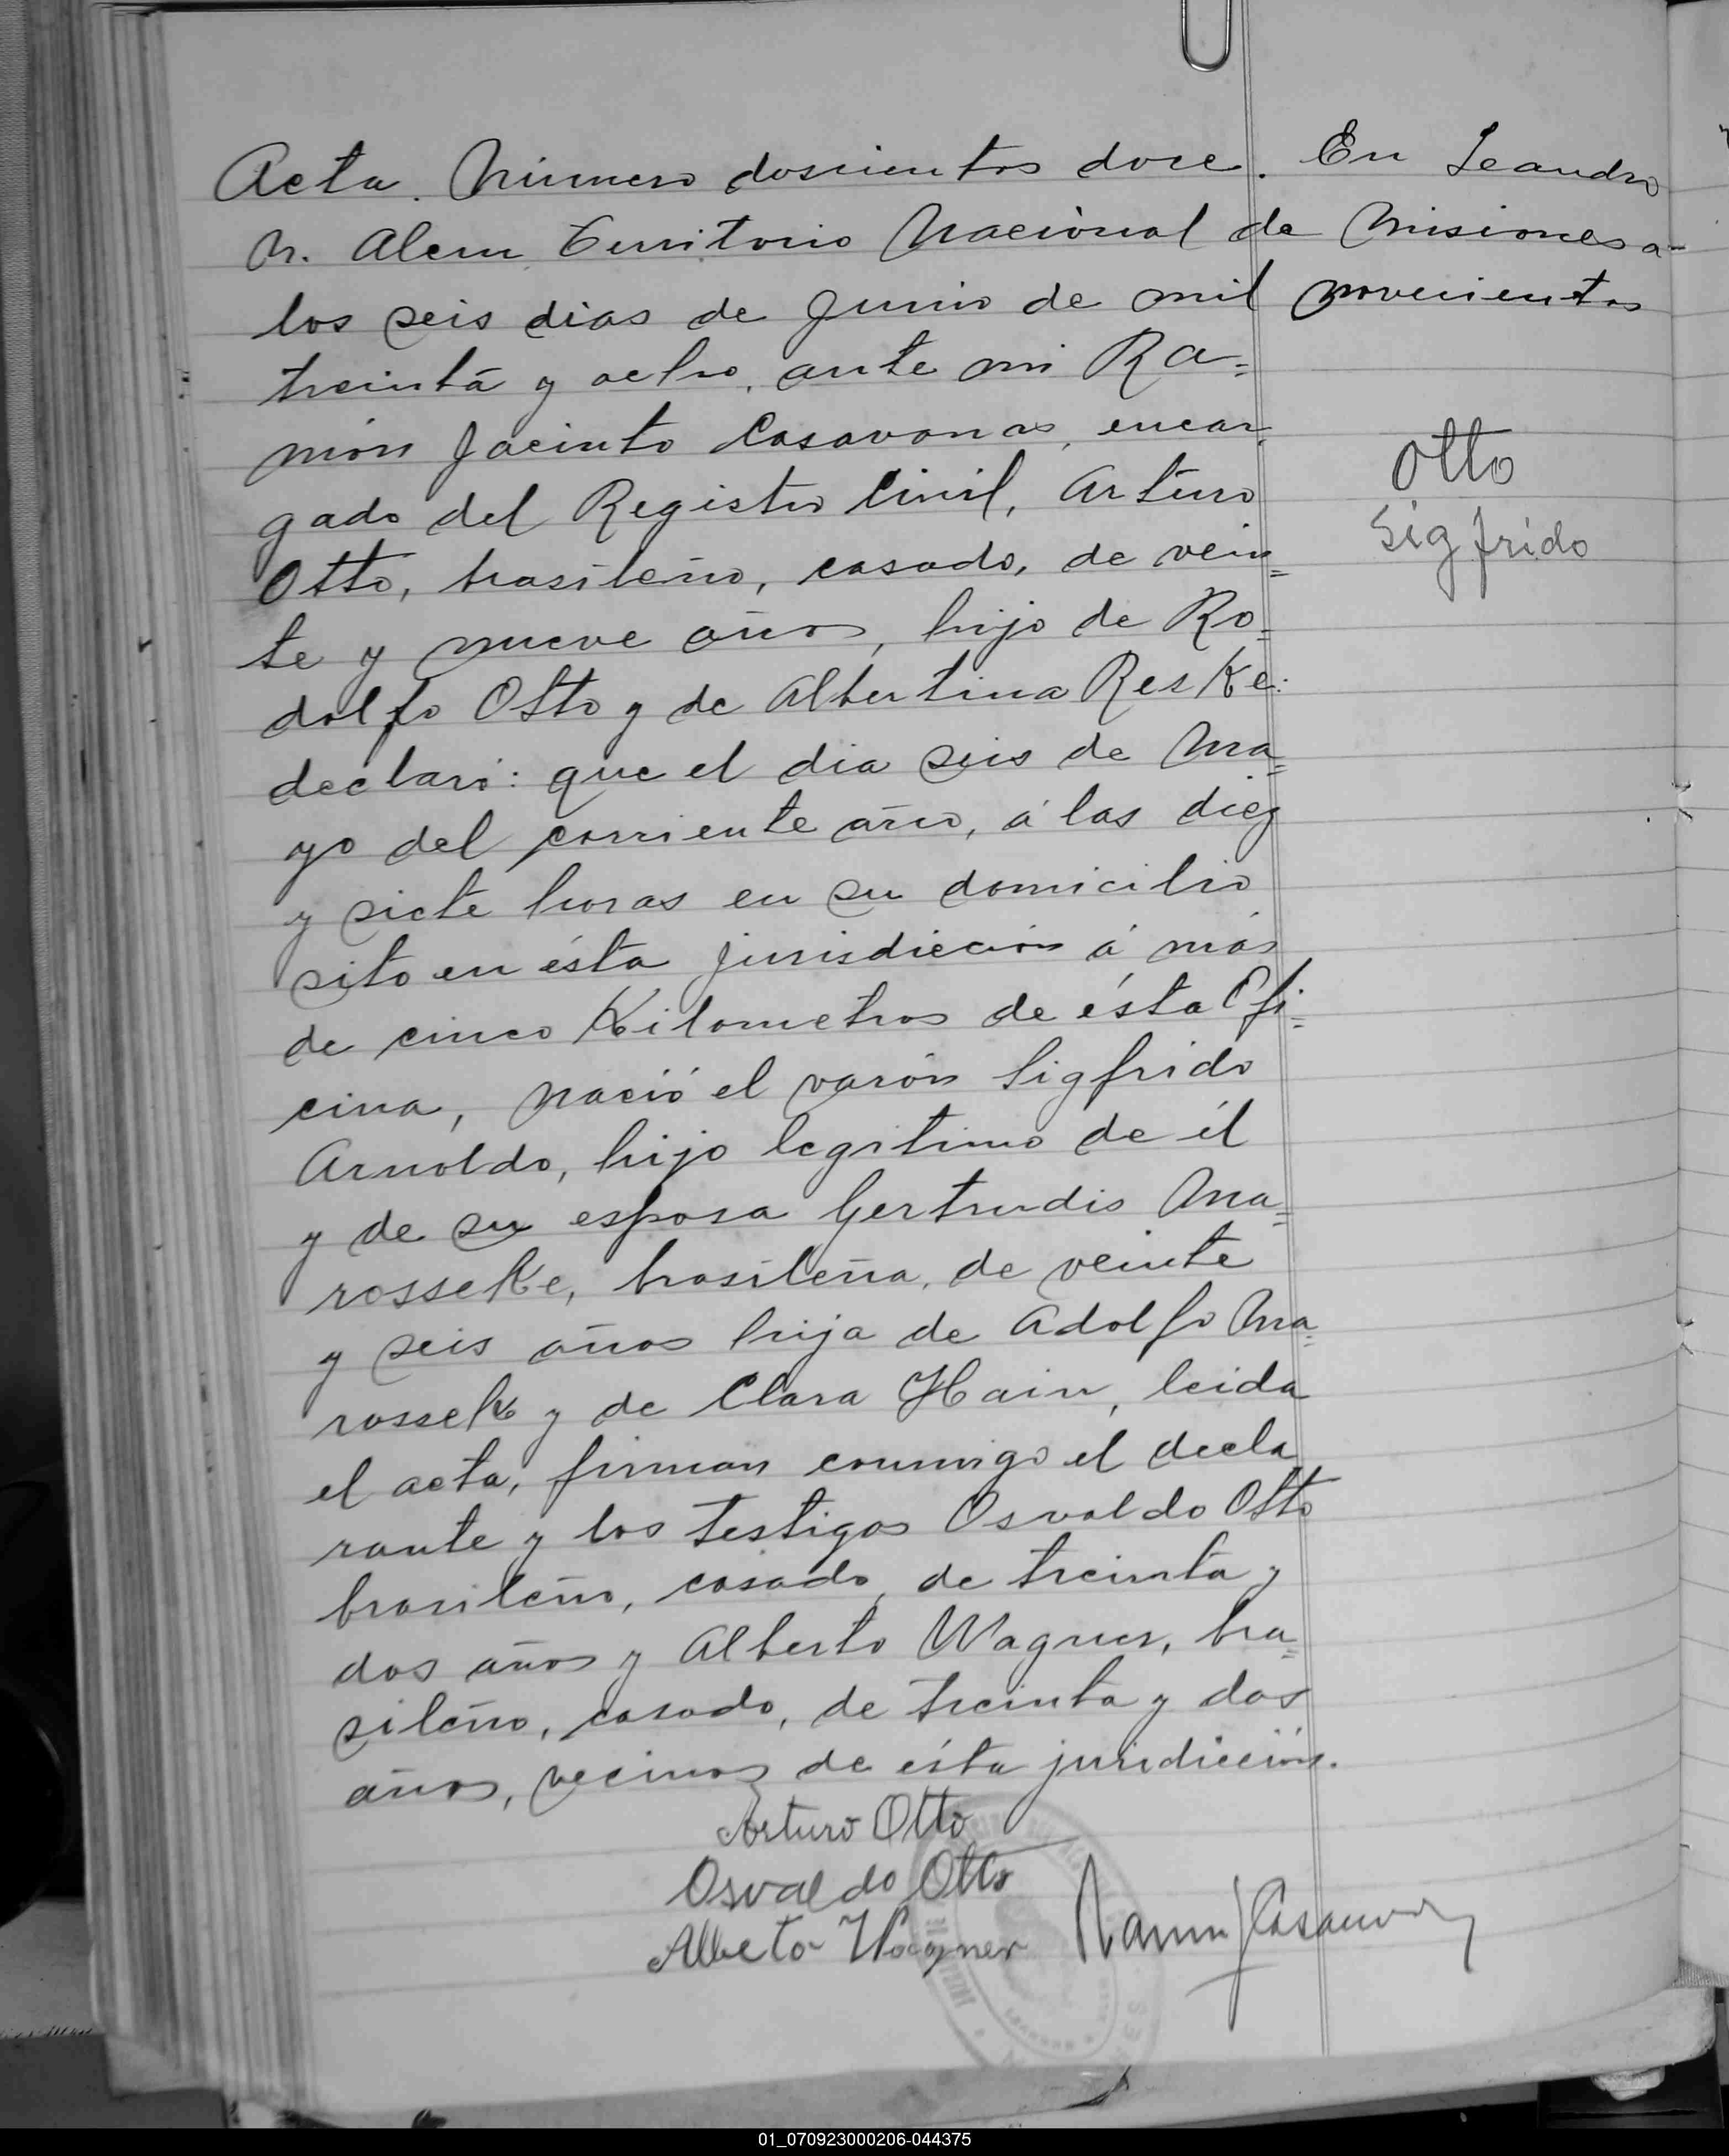 Acta. Número doscientos doce. En Leandro
N. Alem Territorio Nacional de Misiones a
los seis dias de Junio de mil novecientos
treinta y ocho, ante mi Ra=
món Jacinto Casavonas, encar
gado del Registro Civil, Arturo
Otto, brasileño, casado, de vein=
te y nueve años, hijo de Ro=
dolfo Otto y de Albertina Reske:
declaró: que el dia seis de Ma=
yo del corriente año, á las diez
y siete horas en su domicilio
sito en ésta jurisdicción á más
de cinco Kilometros de ésta Ofi=
cina, nació el varón Sigfrido
Arnoldo, hijo legitimo de él
y de su esposa Gertrudis Ma=
rosseke, brasileña, de veinte
y seis años hija de Adolfo Ma=
rossek y de Clara Hain, leida
el acta, firman conmigo el decla
rante y los testigos Osvaldo Otto
brasileño, casado, de treinta y
dos años y Alberto Wagner, bra=
sileño, casado, de treinta y dos
años, vecinos de ésta juridicción.
Otto
Sigfrido
Arturo Otto
Osvaldo Otto
Albeto Wagner
01_070923000206-044375